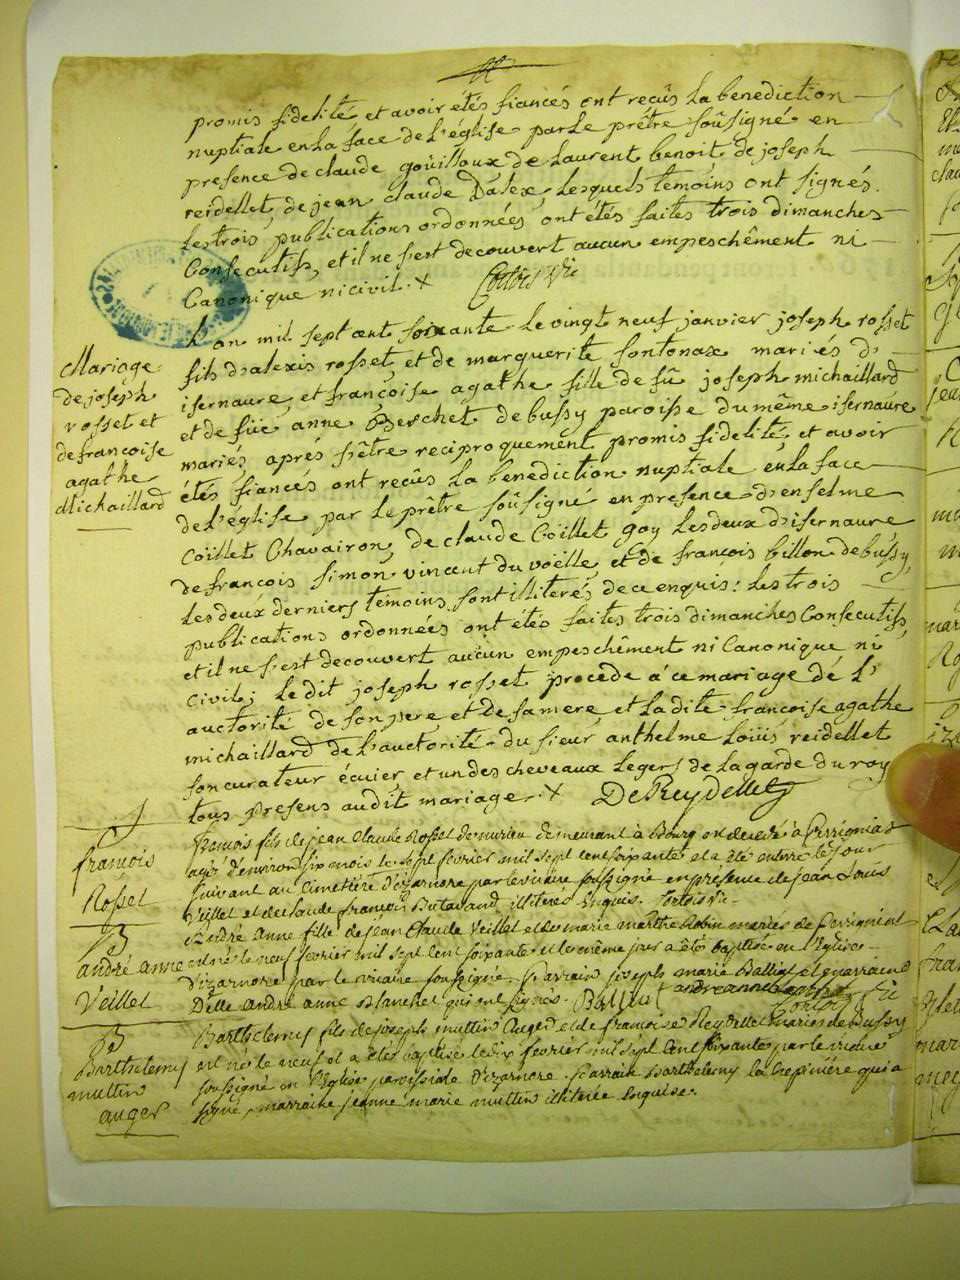 promis fidelité et avoir étés fiancés ont reçûs la benediction
nuptiale en la face de l'église par le prêtre soûsigné en
presence de claude goüilloux de Laurent benoit de joseph
reidellet, de jean claude Dalex, lesquels témoins ont signés.
les trois publications ordonnées ont étés faites trois dimanches
Consecutifs, et il ne s'est decouvert aucun empeschêment ni
Canonique ni civil. x
L'an mil sept cent soixante le vingt neuf janvier joseph rosset
fils d'alexis rosset, et de marguerite fontonax mariés d'
isernaure, et françoise agathe fille de fû joseph michaillard
et de füe anne Berchet de bussy paroisse du même isernaure
mariés, aprés s'être reciproquement promis fidelité, et avoir
étés fiancés ont reçûs la benediction nuptiale en la face
de l'église par le prêtre soûsigné en presence d'enselme
Coïllet Chavairon, de claude Coïllet goy les deux d'isernaure
de françois simon vincent du voëlle, et de françois billon de bussy,
les deux derniers témoins sont illiterés de ce enquis: les trois
publications ordonnées ont étés faites trois dimanches Consecutifs,
et il ne s'est decouvert aucun empeschêment ni Canonique ni
civil; le dit joseph rosset procede à ce mariage de l'
auctorité de son pere et de sa mere, et la dite françoise agathe
michaillard de l'auctorité du sieur anthelme Loüis reidellet
son curateur écuier, et un des cheveaux legers de la garde du roy
tous presens au dit mariage. x DeReydellet
Mariage
de joseph
rosset et
de françoise
agathe
Michaillard
françois
Rosset
françois fils de jean Claude Rosset demeurant à Bourg
agé d'environ six mois le sept fevrier mil sept cent soixante et a été enterré le jour
suivant au Cimetière d'izarnore par le vicaire soussigné en presence de jean Louis
Veillet et de Claude françois Butavand illiterés Enquis.
B
andré anne
Veillet
André anne fille de jean Claude Veillet et de marie marthe Robin mariés de Perrigniat
est née le neuf fevrier mil sept cent soixante et le même jour a étés baptisé en l'Eglise
D'izarnore par le vicaire soussigné. Parrain joseph marie Balliat et marraine
Delle andré anne Blanchet qui ont signés.
B
Barthelemy
muttin
auger
Barthelemy fils de joseph muttin Auger et de françoise Reydellet mariés de Bussy
est né le neuf et a étés baptisé le dix fevrier mil sept cent soixante par le vicaire
soussigné en l'Eglise paroissiale d'izarnore. Parrain Barthelemy la Crepinière qui a
signé, marraine jeanne marie muttin illiterée Enquise.